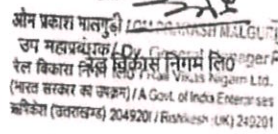 ओम प्रकाश मालगुड़ी / OM PRAKASH MALGURI
उप महाप्रबंधक / Dy. General Manager
रेल विकास निगम लि० / Rail Vikas Nigam Ltd.
रेल विकास निगम लि०
(भारत सरकार का उपक्रम) / A Govt. of India Enterprises
ऋषिकेश (उत्तराखण्ड) 249201 / Rishikesh (UK) 249201